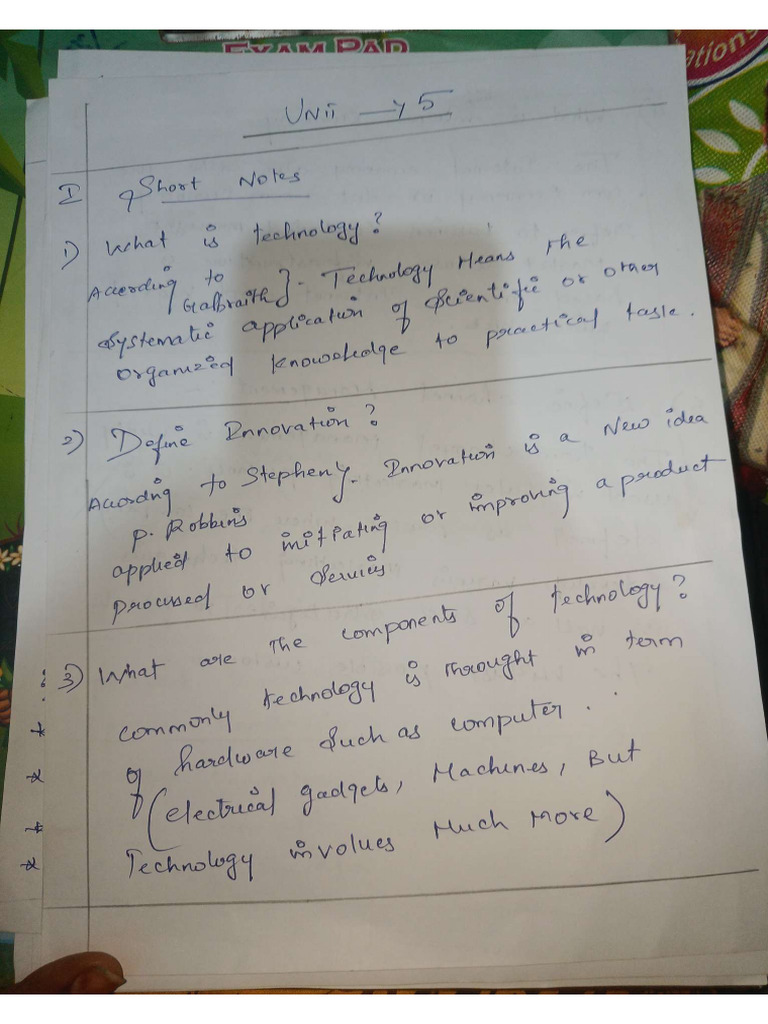 EXAM PAD
ations
Unit → 5
I Short Notes
1) What is technology?
According to Galbraith} - Technology Means the
Systematic application of Scientific or other
organized knowledge to practical task.
2) Define Innovation?
Acording to Stephen P. Robbins}- Innovation is a New idea
applied to initiating or improving a product
processed or Servics
3) What are the components of technology?
commonly technology is throught in term
of hardware such as computer.
(electrical gadgets, Machines, But
Technology involues Much More)